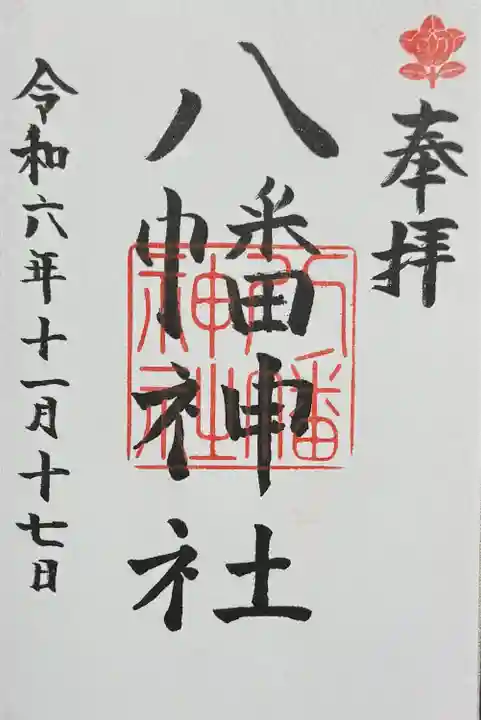 奉拝
八幡神社
令和六年十一月十七日